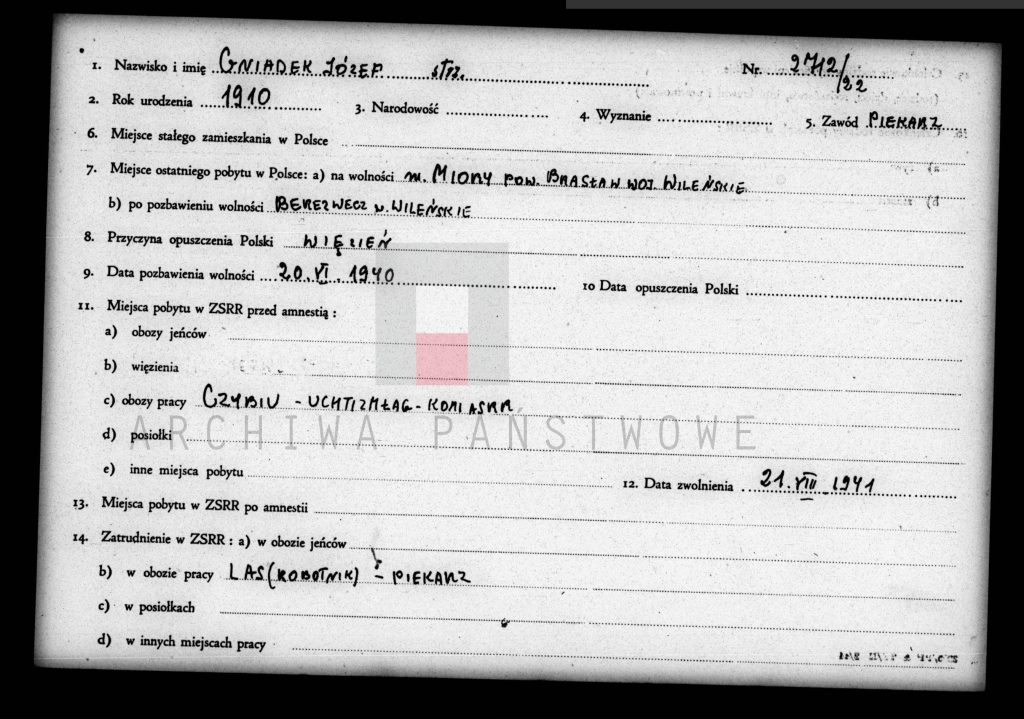 1. Nazwisko i imię GNIADEK JÓZEF strz. Nr. 2712/22
2. Rok urodzenia 1910 3. Narodowość 4. Wyznanie 5. Zawód PIEKARZ
6. Miejsce stałego zamieszkania w Polsce
7. Miejsce ostatniego pobytu w Polsce: a) na wolności m. MIORY POW. BRASŁAW WOJ. WILEŃSKIE
b) po pozbawieniu wolności BEREZWECZ W. WILEŃSKIE
8. Przyczyna opuszczenia Polski WIĘZIEŃ
9. Data pozbawienia wolności 20. VI. 1940 10 Data opuszczenia Polski
11. Miejsca pobytu w ZSRR przed amnestią :
a) obozy jeńców
b) więzienia
c) obozy pracy CZYBIU - UCHTIZMŁAG - KOMI ASRR
ARCHIWA PAŃSTWOWE
d) posiołki
e) inne miejsca pobytu 12. Data zwolnienia 21. VIII. 1941
13. Miejsca pobytu w ZSRR po amnestii
14. Zatrudnienie w ZSRR : a) w obozie jeńców
b) w obozie pracy LAS (ROBOTNIK) - PIEKARZ
c) w posiołkach
d) w innych miejscach pracy